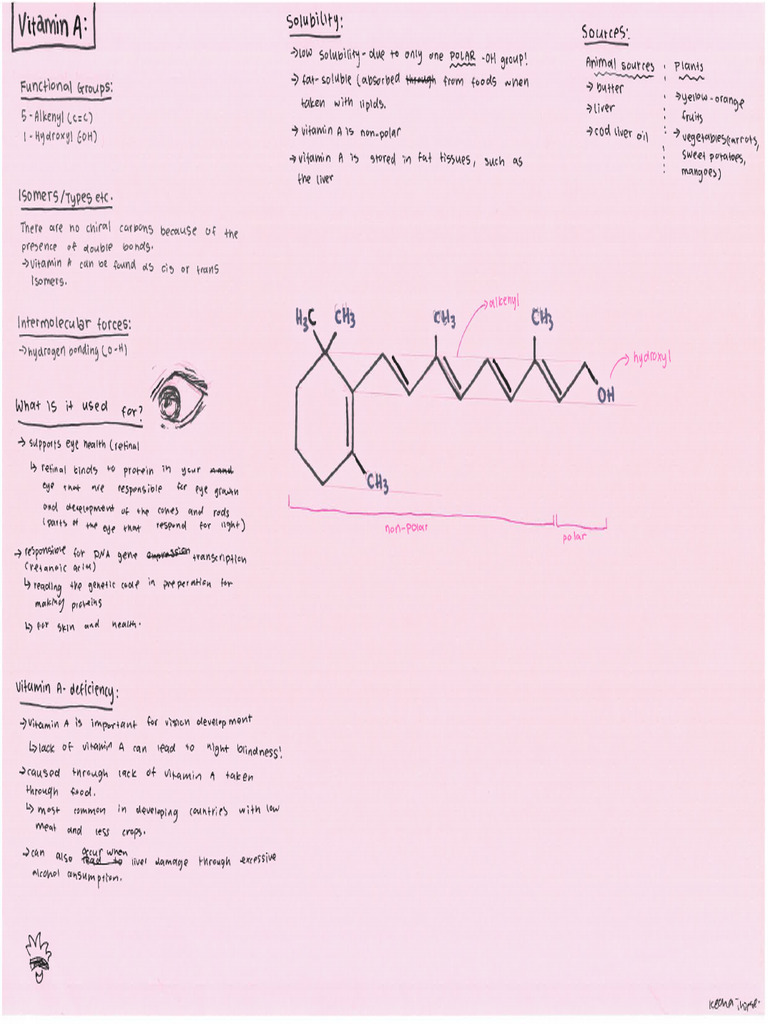 Vitamin A:
Functional Groups:
5-Alkenyl (C=C)
1-Hydroxyl (OH)
Isomers/Types etc.
There are no chiral carbons because of the
presence of double bonds.
→ Vitamin A can be found as cis or trans
isomers.
Intermolecular forces:
→ hydrogen bonding (O-H)
What is it used for?
→ supports eye health (retinal
↳ retinal binds to protein in your
eye that are responsible for eye growth
and development of the cones and rods
(parts of the eye that respond for light)
→ responsible for DNA gene expression transcription
(retanoic acid)
↳ reading the genetic code in preparation for
making proteins
↳ for skin and health.
Vitamin A- deficiency:
→ Vitamin A is important for vision development
↳ lack of vitamin A can lead to night blindness!
→ caused through lack of vitamin A taken
through food.
↳ most common in developing countries with low
meat and less crops.
→ can also lead to occur when liver damage through excessive
alcohol consumption.
Solubility:
→ low solubility- due to only one POLAR -OH group!
→ fat-soluble (absorbed through from foods when
taken with lipids.
→ vitamin A is non-polar
→ vitamin A is stored in fat tissues, such as
the liver
Sources:
Animal sources
→ butter
→ liver
→ cod liver oil
Plants
→ yellow-orange
fruits
→ vegetables (carrots,
sweet potatoes,
mangoes)
H₃C CH₃
CH₃
alkenyl
CH₃
hydroxyl
OH
CH₃
non-polar
polar